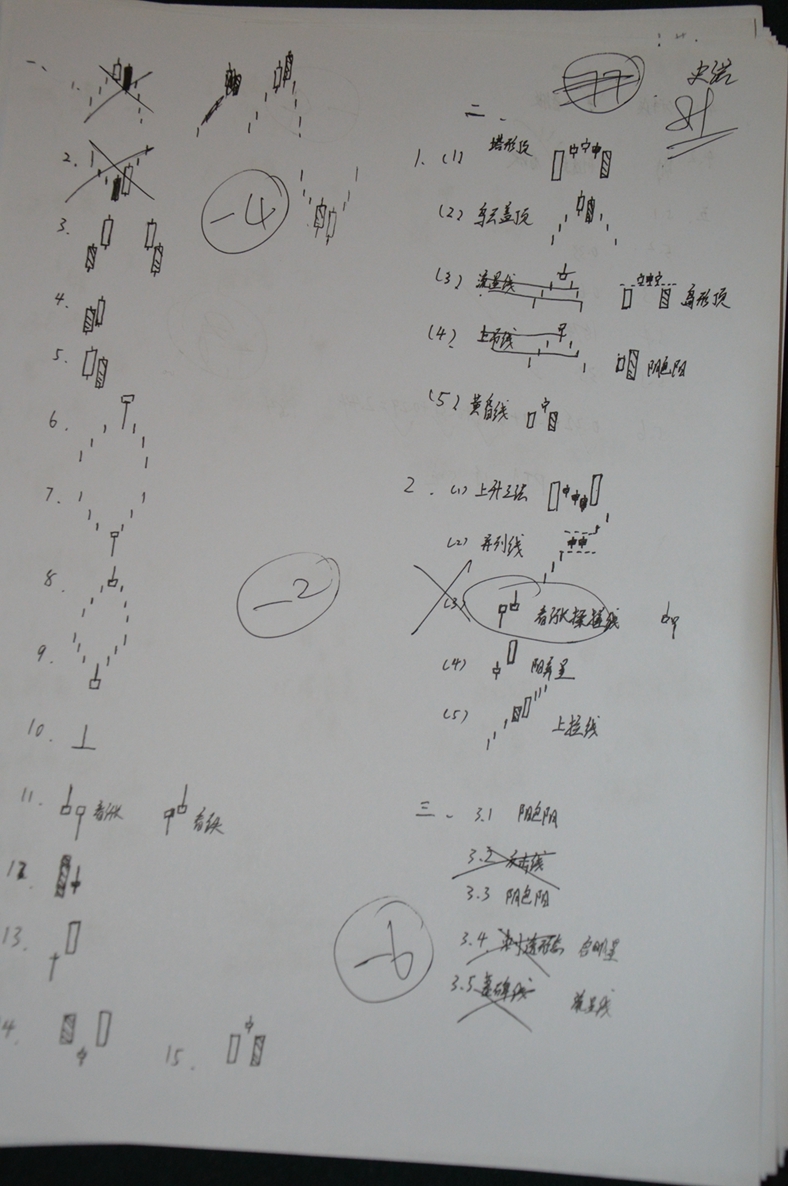 一、
1.
2.
3.
4.
5.
6.
7.
8.
9.
10.
11. 看涨 看跌
12.
13.
14.
15.
-4
-2
-6
77
81
二、
1. (1) 塔形顶
(2) 乌云盖顶
(3) 流星线 扇形顶
(4) 上吊线 阴包阳
(5) 黄昏线
2. (1) 上升三法
(2) 并列线
(3) 看涨揉搓线
(4) 阳孕星
(5) 上拉线
三、 3.1 阴包阳
3.2
3.3 阴包阳
3.4 启明星
3.5 流星线